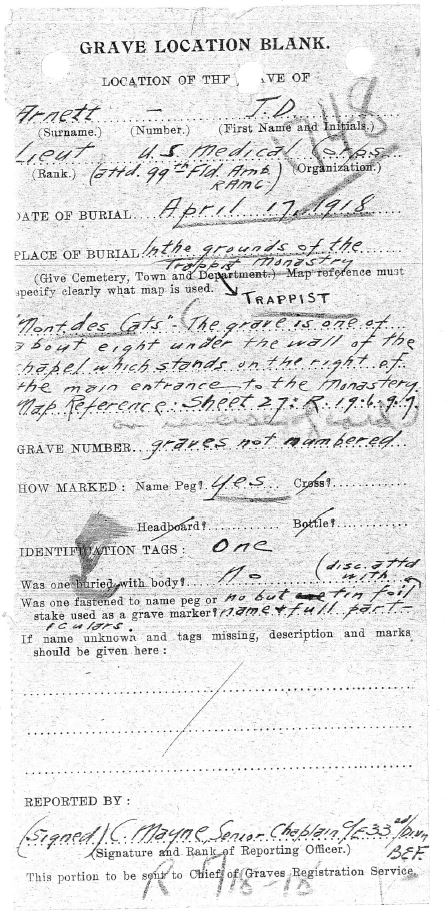 GRAVE LOCATION BLANK.
LOCATION OF THE AVE OF
Arnett - J.D
(Surname.) (Number.) (First Name and Initials.)
Lieut U.S Medical Corps
(Rank.) (attd. 99th Fld. Amb. RAMC) (Organization.)
DATE OF BURIAL April 17, 1918
PLACE OF BURIAL In the grounds of the
Trappist Monastry
(Give Cemetery, Town and Department.) Map reference must
specify clearly what map is used.
TRAPPIST
"Mont des Cats" - The grave is one of
about eight under the wall of the
chapel which stands on the right of
the main entrance to the Monastery
Map Reference. Sheet 27: R. 19. b. 9.7.
GRAVE NUMBER graves not numbered
HOW MARKED: Name Peg? yes Cross?
Headboard? Bottle?
IDENTIFICATION TAGS: One
Was one buried with body? No (disc. attd with
Was one fastened to name peg or no but tin foil
stake used as a grave marker? name + full part-
iculars.
If name unknown and tags missing, description and marks
should be given here:
REPORTED BY:
(Signed) C. Mayne, Senior Chaplain C/E 33rd Divn
(Signature and Rank of Reporting Officer.) B.E.F.
This portion to be sent to Chief of Graves Registration Service.